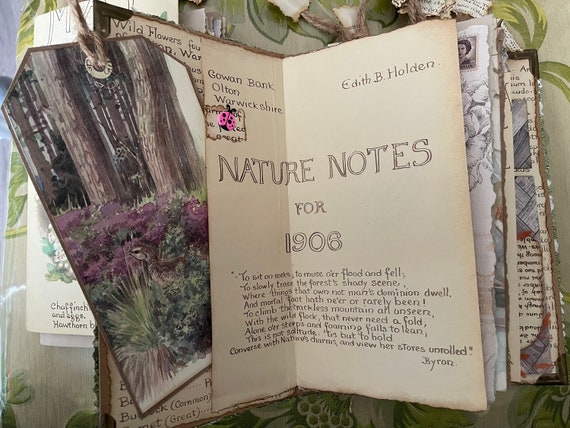 Wild Flowers fou
Gowan Bank
Olton
Warwickshire
Edith B. Holden.
NATURE NOTES
FOR
1906
"To sit on rocks, to muse o'er flood and fell;
To slowly trace the forest's shady scene,
Where things that own not man's dominion dwell,
And mortal foot hath ne'er or rarely been;
To climb the trackless mountain all unseen,
With the wild flock, that never need a fold;
Alone o'er steeps and foaming falls to lean;
This is not solitude, 'tis but to hold
Converse with Nature's charms, and view her stores unrolled."
Byron.
Chaffinch
and eggs.
Hawthorn b
(Common)
(Great)